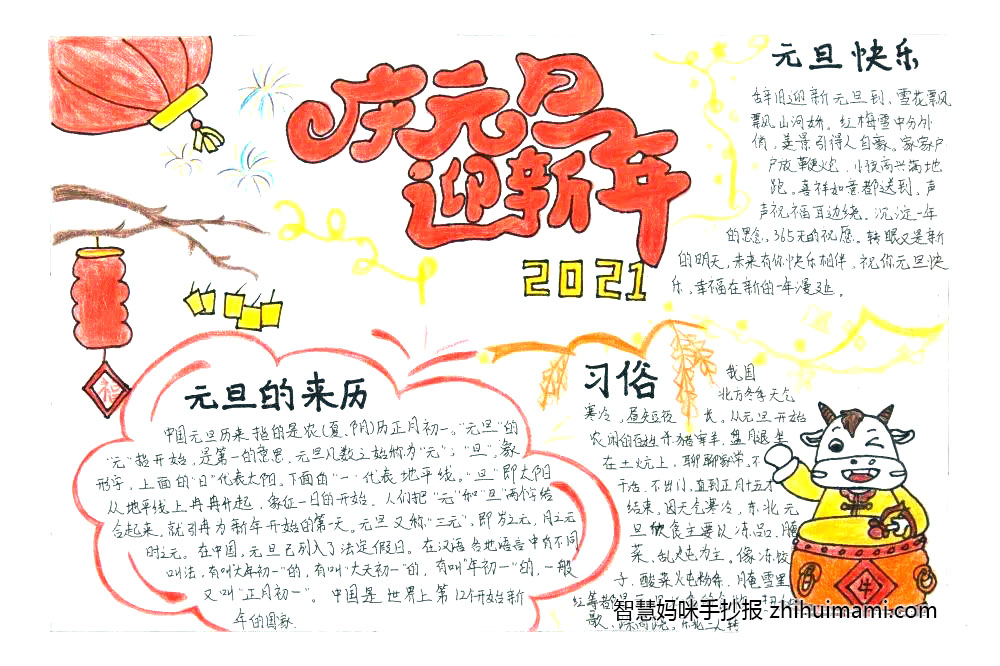 庆元旦
迎新年
2021
元旦快乐
辞旧迎新元旦到，雪花飘
飘山河娇。红梅雪中分外
俏，美景引得人自豪。家家户
户放鞭炮，小孩高兴满地
跑。喜祥如意都送到，声
声祝福耳边绕。沉淀一年
的思念，365天的祝愿。转眼又是新
的明天，未来有你快乐相伴，祝你元旦快
乐，幸福在新的一年漫延。
福
元旦的来历
中国元旦历来指的是农（夏、阴）历正月初一。"元旦"的
"元"指开始，是第一的意思，凡数之始称为"元"；"旦"，象
形字，上面的"日"代表太阳，下面的"一"代表地平线。"旦"即太阳
从地平线上冉冉升起，象征一日的开始，人们把"元"和"旦"两个字结
合起来，就引申为新年开始的第一天。元旦又称"三元"，即岁之元，月之元
时之元。在中国，元旦已列入了法定假日。在汉语各地语言中有不同
叫法，有叫"大年初一"的，有叫"大天初一"的，有叫"年初一"的，一般
又叫"正月初一"。中国是世界上第12个开始新
年的国家
习俗
我国
北方冬季天气
寒冷，昼短夜长。从元旦开始
农闲的百姓
在土火亢上，聊聊家常，不
干活，不出门，直到正月十五才
结束，因天气寒冷，东北元
旦饮食主要以冻品，腌
菜，乱炖为主。像冻饺
子，酸菜火屯粉条，腌雪里
红等都
歌，
牛
智慧妈咪手抄报 zhihuimami.com